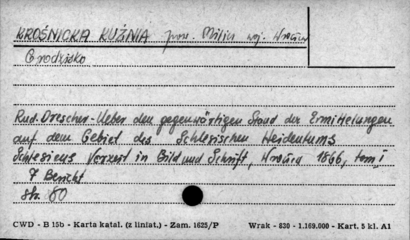 KROŚNICKA KUŹNIA pow. Milicz woj. Wrocław
Grodzisko
Rud. Drescher - Ueber den gegenwärtigen Stand der Ermittelungen
auf dem Gebiet des Schlesischen Heidentums
Schlesiens Vorzeit in Bild und Schrift, 1866, tom I
7 Bericht
Str. 60
CWD - B 15b - Karta katal. (z liniat.) - Zam. 1625/P Wrak - 830 - 1.169.000 - Kart. 5 kl. A1